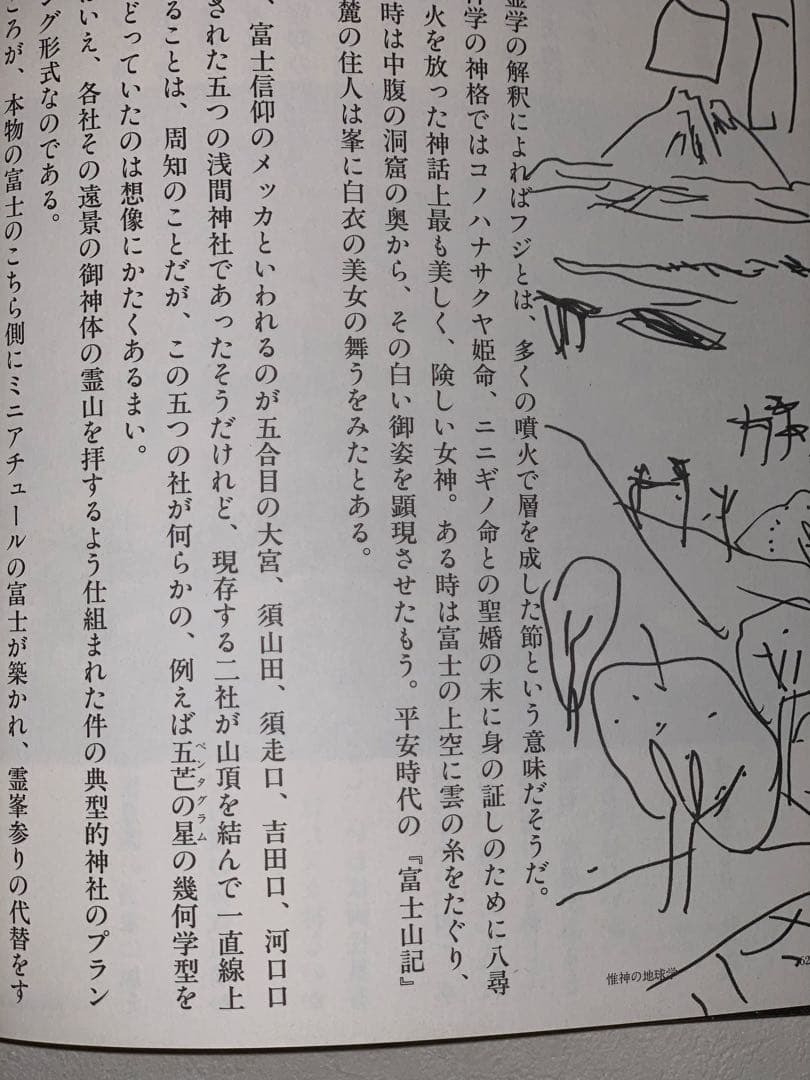 霊学の解釈によればフジとは、多くの噴火で層を成した節という意味だそうだ。
学の神格ではコノハナサクヤ姫命、ニニギノ命との聖婚の末に身の証しのために八尋
火を放った神話上最も美しく、険しい女神。ある時は富士の上空に雲の糸をたぐり、
時は中腹の洞窟の奥から、その白い御姿を顕現させたもう。平安時代の『富士山記』
麓の住人は峯に白衣の美女の舞うをみたとある。
、富士信仰のメッカといわれるのが五合目の大宮、須山田、須走口、吉田口、河口口
された五つの浅間神社であったそうだけれど、現存する二社が山頂を結んで一直線上
ることは、周知のことだが、この五つの社が何らかの、例えば五芒の星の幾何学型を
ペンタグラム
どっていたのは想像にかたくあるまい。
いえ、各社その遠景の御神体の霊山を拝するよう仕組まれた件の典型的神社のプラン
ング形式なのである。
ころが、本物の富士のこちら側にミニアチュールの富士が築かれ、霊峯参りの代替をす
惟神の地球学
62